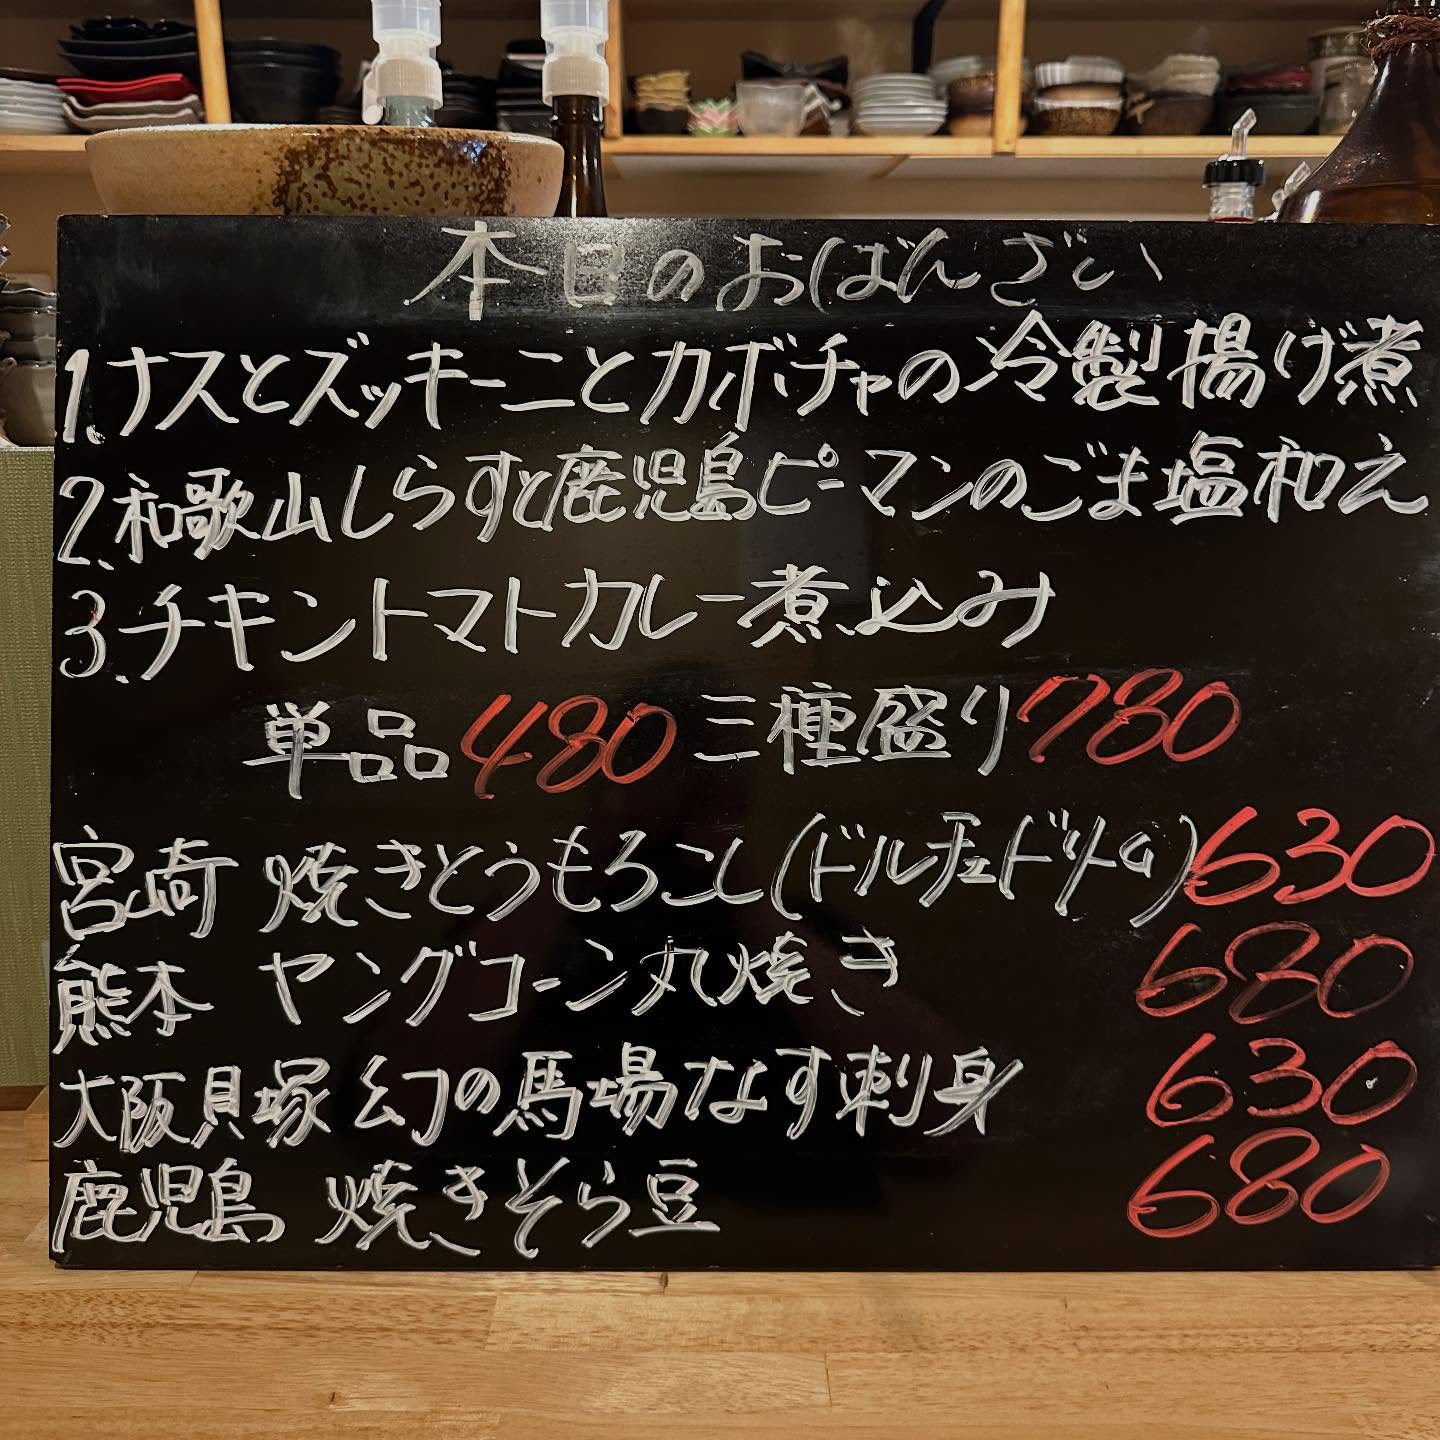 本日のおばんざい
1.ナスとズッキーニとカボチャの冷製揚げ煮
2.和歌山しらすと鹿児島ピーマンのごま塩和え
3.チキントマトカレー煮込み
単品480 三種盛り780
宮崎 焼きとうもろこし(ドルチェドリーム)630
熊本 ヤングコーン丸焼き 680
大阪貝塚 幻の馬場なす刺身 630
鹿児島 焼きそら豆 680